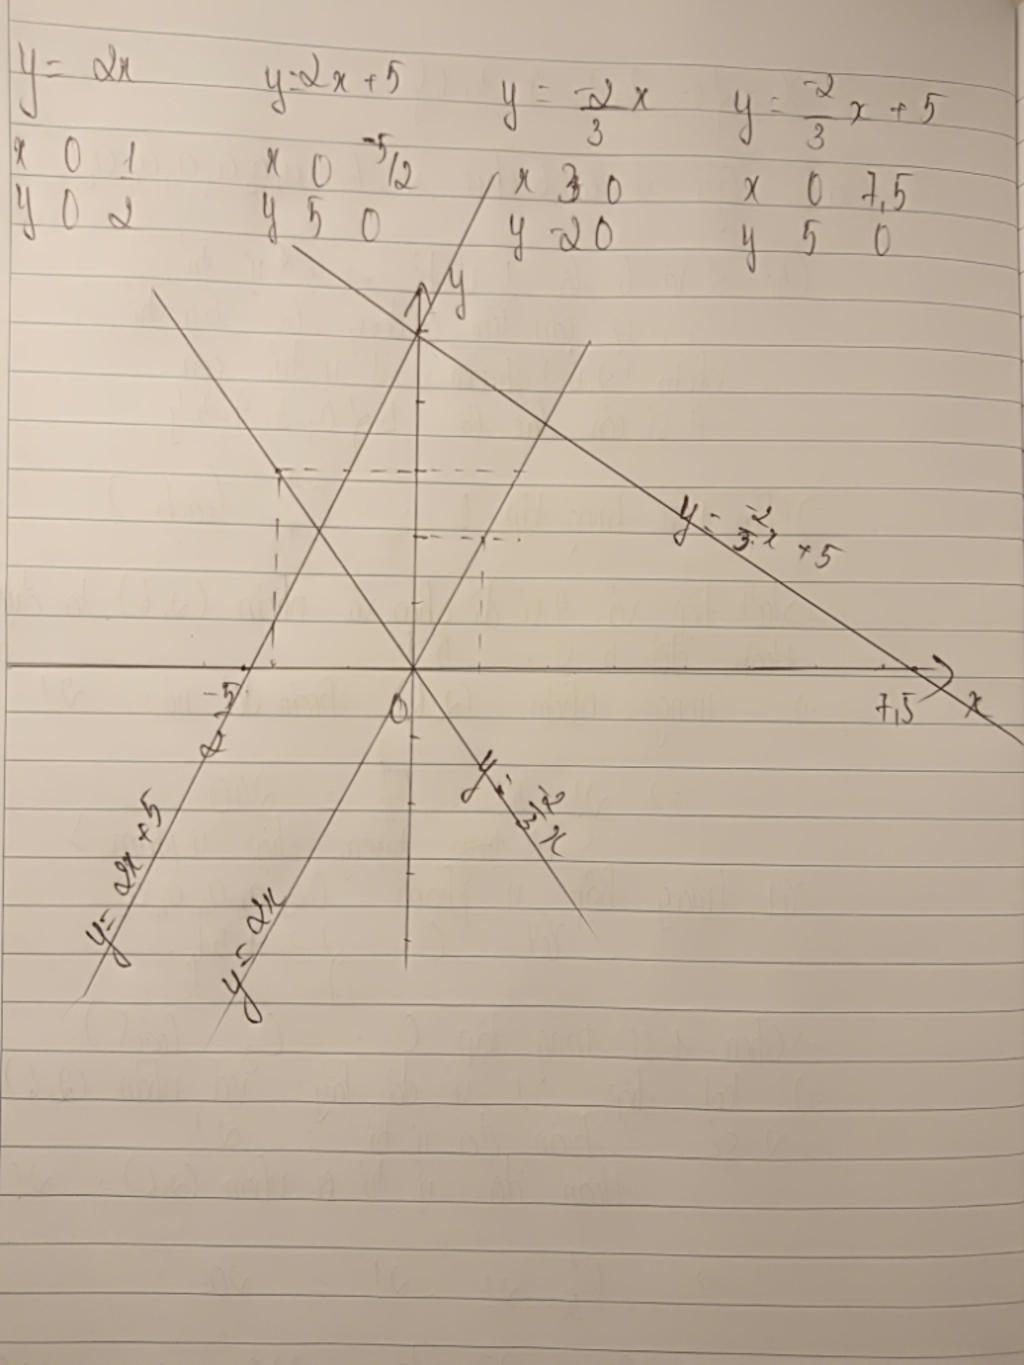 y = 2x y=2x+5 y = -2/3 x y = -2/3 x + 5
x 0 1 x 0 -5/2 x 3 0 x 0 7,5
y 0 2 y 5 0 y -2 0 y 5 0
y
y = -2/3 x + 5
-5/2
0
7,5
x
y = -2/3 x
y = 2x + 5
y = 2x